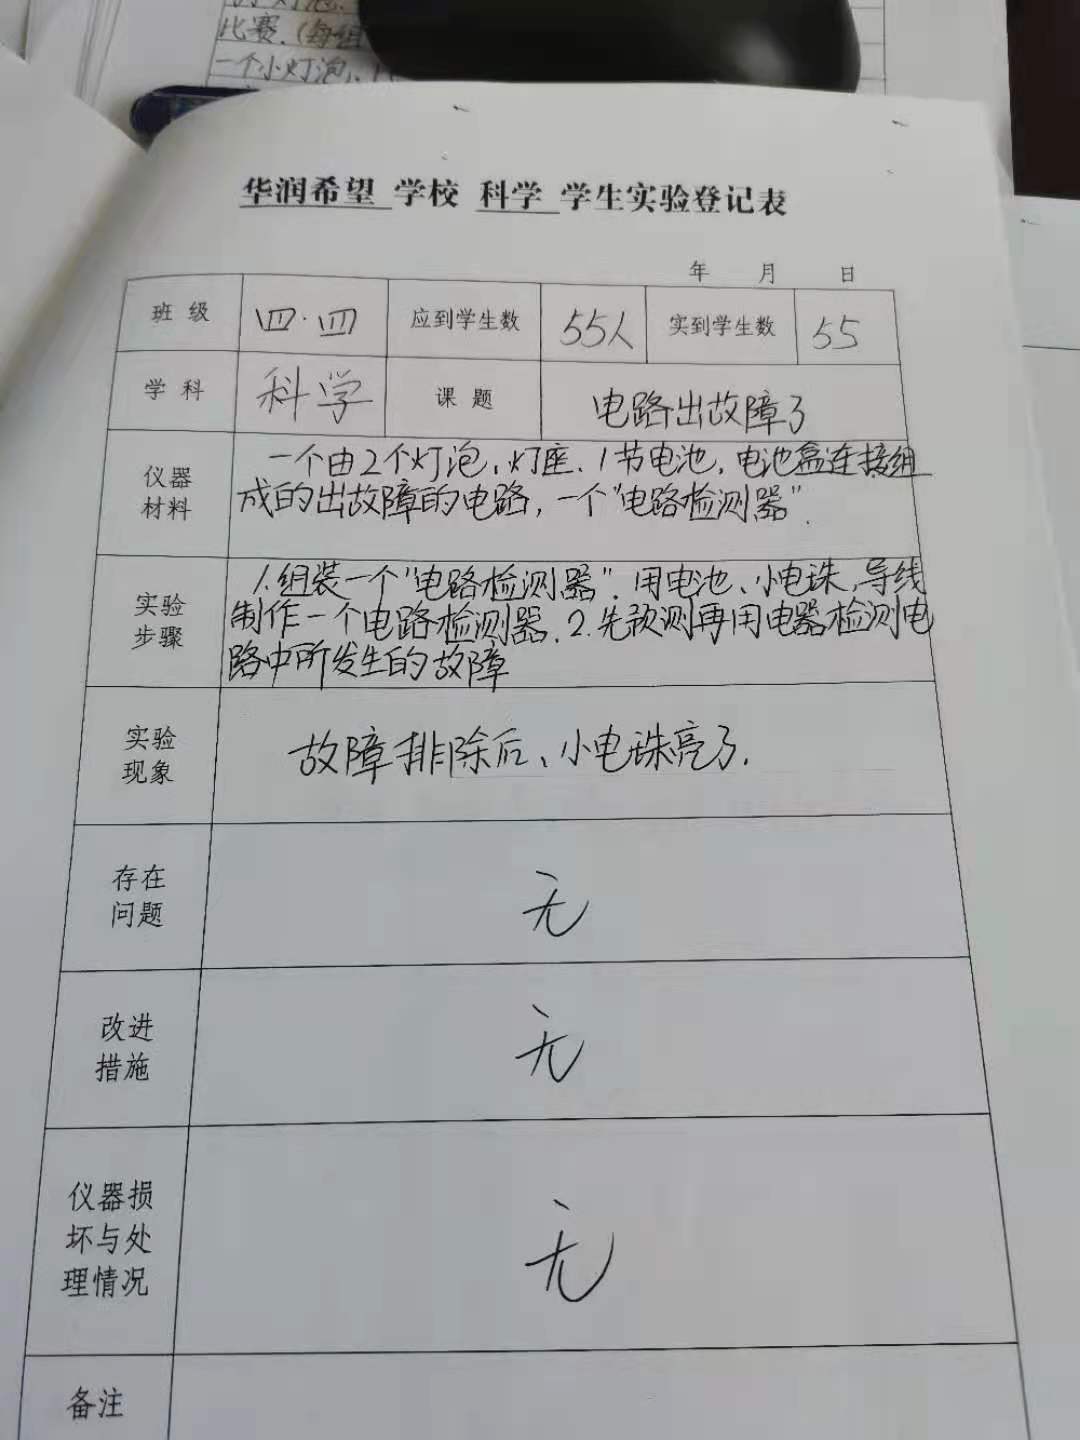 比赛.(每组
一个小灯泡、1
华润希望 学校 科学 学生实验登记表
年 月 日
班 级 四·四 应到学生数 55人 实到学生数 55
学 科 科学 课 题 电路出故障了
仪器 一个由2个灯泡、灯座、1节电池,电池盒连接组
材料 成的出故障的电路,一个"电路检测器".
1.组装一个"电路检测器".用电池、小电珠,导线
实验 制作一个电路检测器.2.先预测再用电器检测电
步骤 路中所发生的故障
实验
现象 故障排除后、小电珠亮了.
存在
问题 无
改进
措施 无
仪器损
坏与处 无
理情况
备注